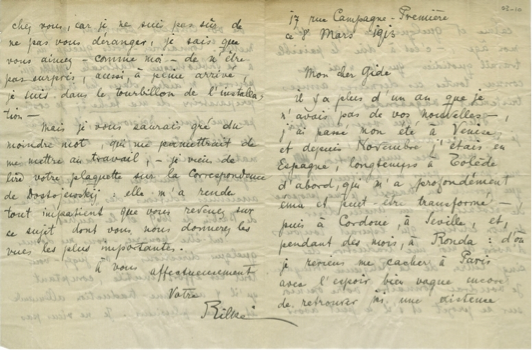 17 rue Campagne-Première
ce 8 Mars 1913
Mon cher Gide
il y a plus d'un an que je
n'avais pas de vos nouvelles —
j'ai passé mon été à Venise,
et depuis Novembre j'étais en
Espagne, longtemps à Tolède
d'abord, qui m'a profondément
ému et peut être transformé —
puis à Cordoue, à Séville, et,
pendant des mois, à Ronda : d'où
je reviens me cacher à Paris
avec l'espoir bien vague encore
de retrouver ici une distance
chez vous, car je ne suis pas sûr de
ne pas vous déranger, je sais que
vous aimez — comme moi — de n'être
pas surpris, aussi, à peine arrivé,
je suis dans le tourbillon de l'installa-
tion —
Mais je vous saurais gré du
moindre mot, qui me permettrait de
me mettre au travail, — je viens de
lire votre plaquette sur la Correspondance
de Dostojewskij, elle m'a rendu
tout impatient, que vous revenez sur
ce sujet dont vous nous donnerez les
vues les plus importantes.
à vous affectueusement
Votre
Rilke